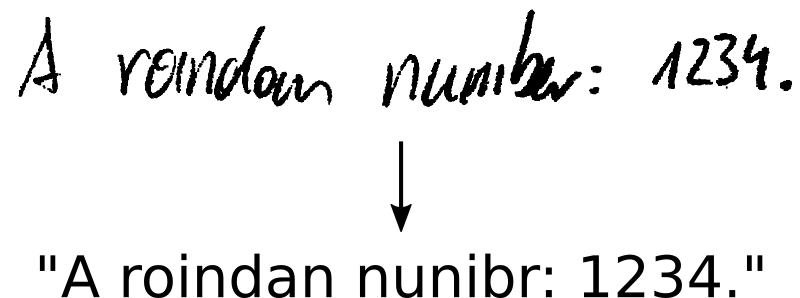 A random number: 1234.
"A roindan nunibr: 1234."